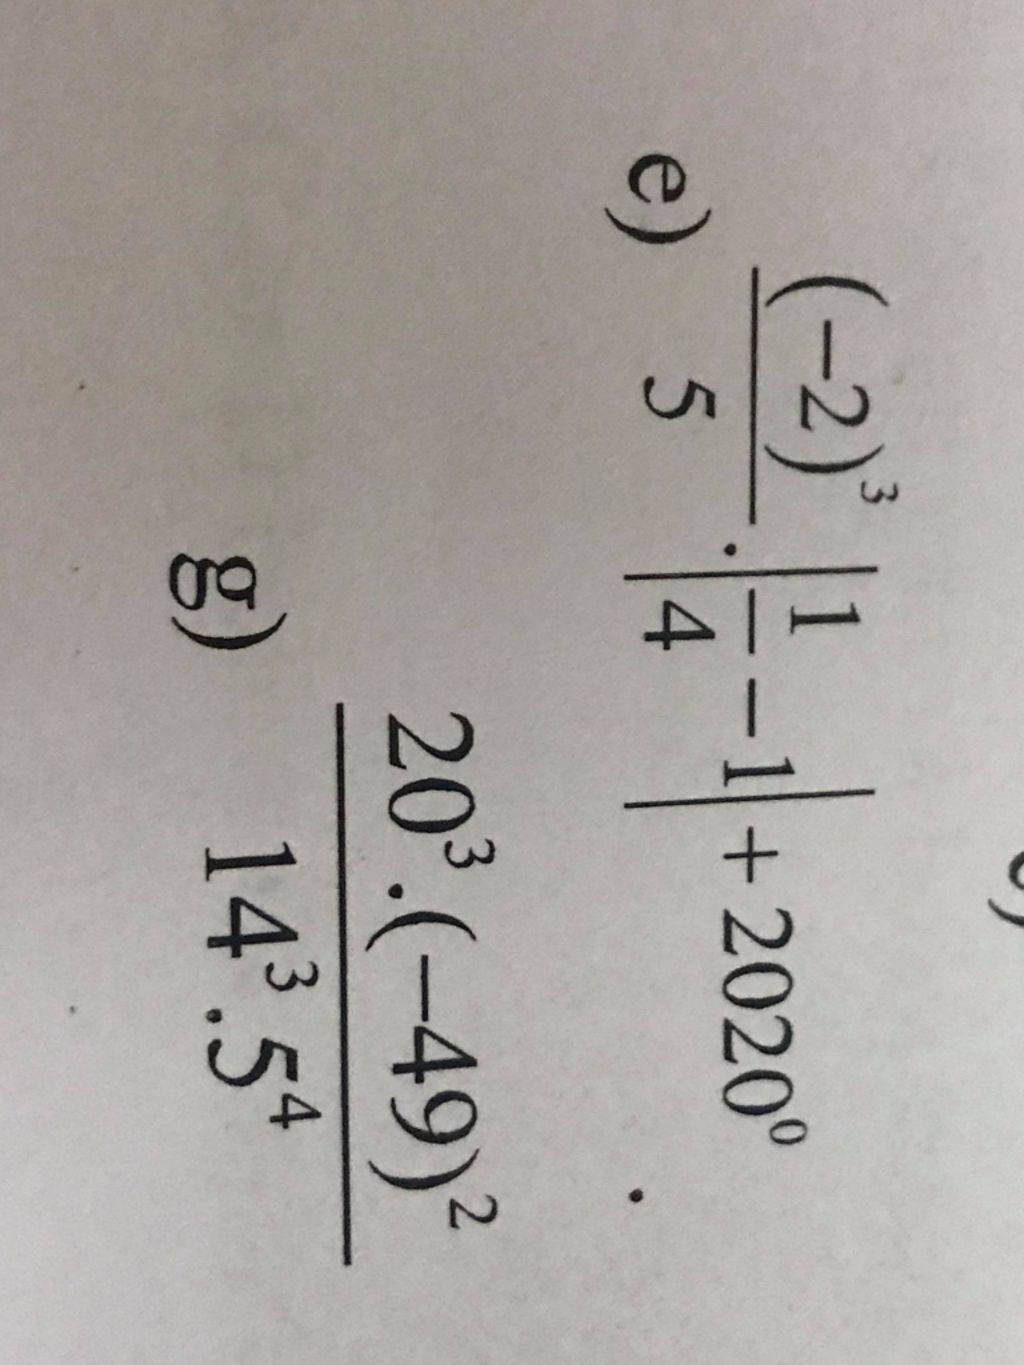 e) (-2)³/5 . |1/4 - 1| + 2020⁰
g) 20³.(-49)²/14³.5⁴